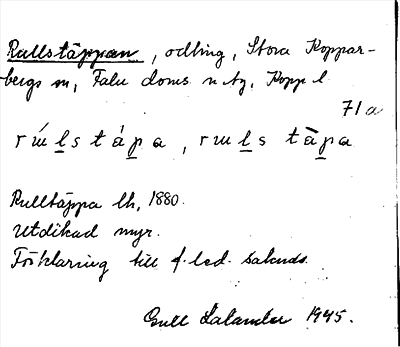 Rullstäppan, odling, Stora Koppar-
bergs sn, Falu doms. n tg, Kopp l
71a
Rulltäppa lh, 1880.
Utdikad myr.
Förklaring till f. led. saknas.
Gull Salander 1945.